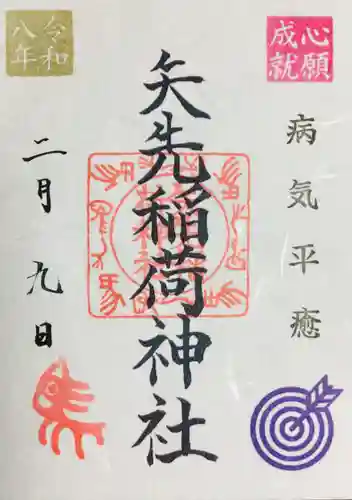 心願成就
病気平癒
矢先稲荷神社
令和八年
二月九日